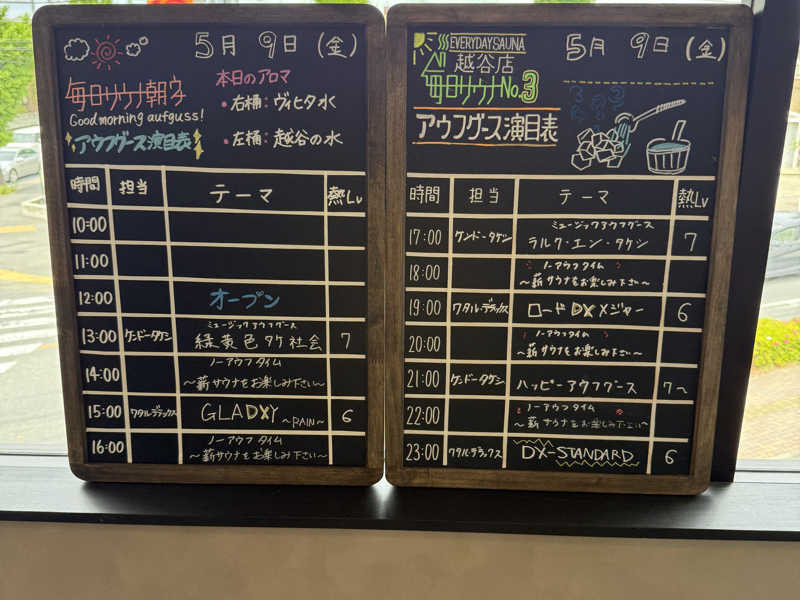 5月 9日 (金)
毎日サウナ朝ウナ
Good morning aufguss!
アウフグース演目表
本日のアロマ
・右桶: ヴィヒタ水
・左桶: 越谷の水
時間 担当 テーマ 熱Lv
10:00
11:00
12:00 オープン
13:00 ケンドータケシ ミュージックアウフグース 緑黄色タケ社会 7
14:00 ノーアウフタイム
～薪サウナをお楽しみ下さい～
15:00 ワタル・デラックス GLADXY ～RAIN～ 6
16:00 ノーアウフタイム
～薪サウナをお楽しみ下さい～
5月 9日 (金)
EVERYDAY SAUNA
越谷店
毎日サウナNo.3
アウフグース演目表
時間 担当 テーマ 熱Lv
17:00 ケンドータケシ ミュージックアウフグース ラルク・エン・タケシ 7
18:00 ノーアウフタイム
～薪サウナをお楽しみ下さい～
19:00 ワタル・デラックス ロードDXメジャー 6
20:00 ノーアウフタイム
～薪サウナをお楽しみ下さい～
21:00 ケンドータケシ ハッピーアウフグース 7～
22:00 ノーアウフタイム
～薪サウナをお楽しみ下さい～
23:00 ワタル・デラックス DX-STANDARD 6